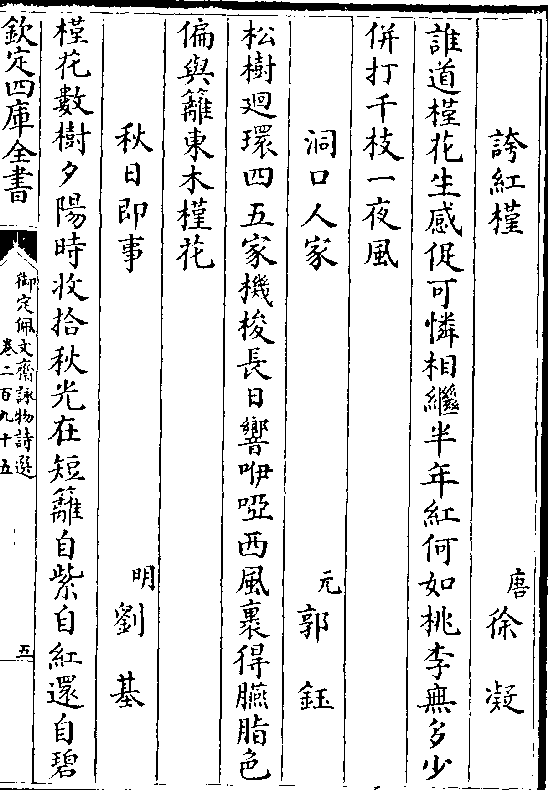 誇紅槿　唐徐凝
誰道槿花生感促可憐相繼半年紅何如桃李無多少
併打千枝一夜風
洞口人家　元郭鈺
松樹廻環四五家機梭長日響咿啞西風裏得臙脂色
偏與籬東木槿花
秋日即事　明劉基
槿花數樹夕陽時收拾秋光在短籬自紫自紅還自碧
欽定四庫全書
御定佩文齋詠物詩選
卷二百九十五
五